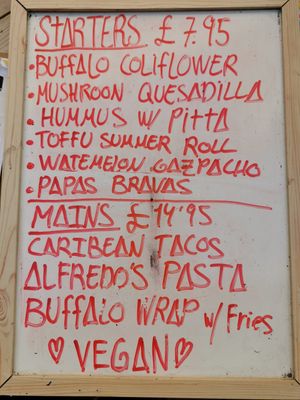 STARTERS £ 7.95
• BUFFALO COLIFLOWER
• MUSHROON QUESADILLA
• HUMMUS W/ PITTA
• TOFFU SUMMER ROLL
• WATEMELON GAZPACHO
• PAPAS BRAVAS
MAINS £ 14'95
CARIBEAN TACOS
ALFREDO'S PASTA
BUFFALO WRAP w/ Fries
♡ VEGAN ♡